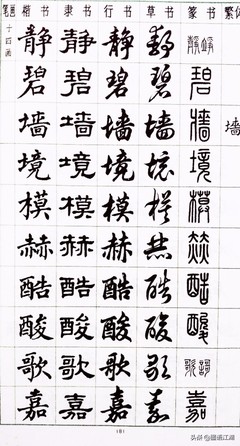 笔画 楷书 隶书 行书 草书 篆书 繁体
十四画 静 静 静 静 静
碧 碧 碧 碧 碧
墙 墙 墙 墙 墙 墙
境 境 境 境 境
模 模 模 模 模
赫 赫 赫 赫 赫
酷 酷 酷 酷 酷
酸 酸 酸 酸 酸
歌 歌 歌 歌 歌 謌
嘉 嘉 嘉 嘉 嘉
头条 @国语江湖